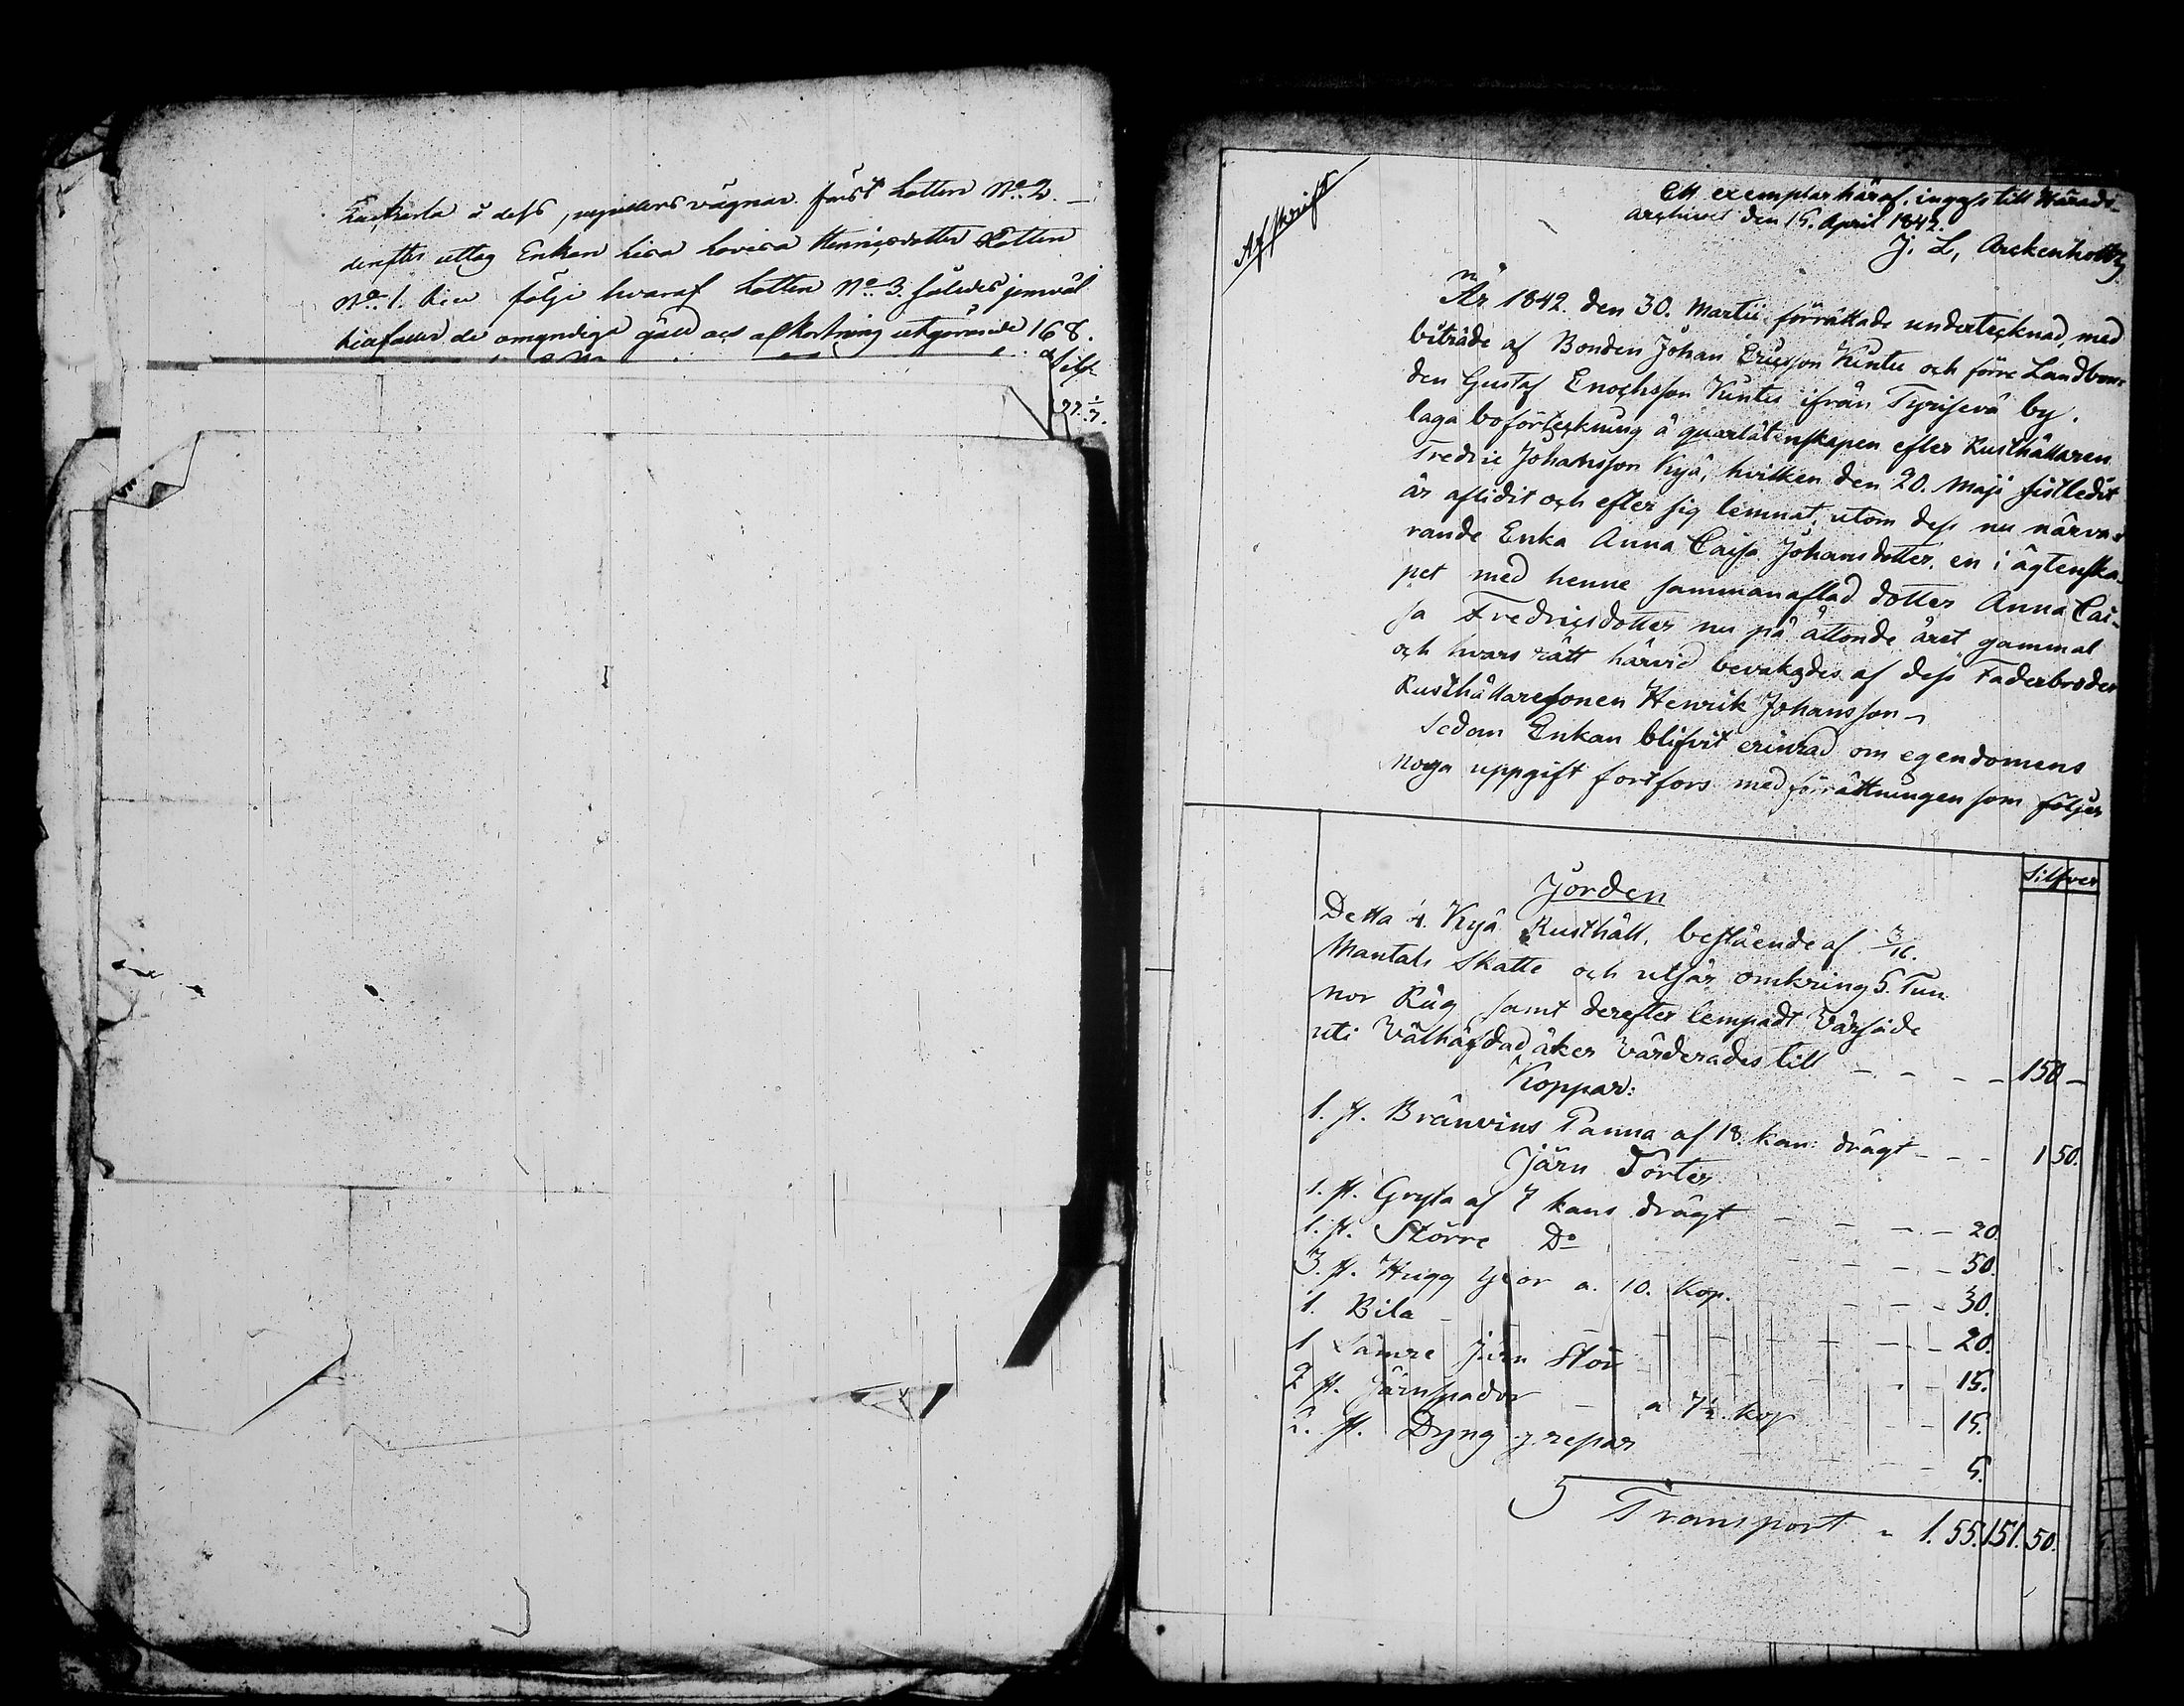 å dess myndlers vägnar först Lotten No. 2. —
derefter uttog Enkan Lisa Lovisa Henricsdotter Lotten
No. 1. följe hvaraf Lotten No. 3. således jemväl
de omyndiga gäld och afkortning utgörande 168.
Silf
97. 1/7.
Afskrift
Ett exemplar häraf, ingifs till Härads-
archivet den 15. April 1842.
J. L. Arckenholtz
År 1842. den 30. Martii förrättade undertecknad, med
biträde af Bonden Johan Ericsson Kuntu och förre Landbon-
den Gustaf Enochsson Kuntu ifrån Tyrisevä by.
laga boförteckning å quarlåtenskapen efter Rusthållaren
Fredric Johansson Kyä, hvilken den 20. Maji sistledit
år aflidit och efter sig lemnat, utom dess nu närva-
rande Enka Anna Caisa Johansdotter, en i ägtenska-
pet med henne sammanaflad dotter Anna Cai-
sa Fredricsdotter nu på åttonde året gammal
och hvars rätt härvid bevakades af dess Faderbroder
Rusthållaresonen Henrik Johansson –
Sedan Enkan blifvit erinrad om egendomens
noga uppgift fortfors med förrättningen som följer
Silfver
Jorden
Detta Kyä Rusthåll, bestående af 3/16.
Mantals Skatte och utsår omkring 5. Tun
nor Råg samt derefter lempadt Vårsäde
uti Välhäfdad åker värderades till – – – – 150 –
Koppar:
1. st. Bränvins Panna af 18. kan: drägt – – – 1 50.
Järn Sorter
1. st. Gryta af 7 kans drägt – – – – 20.
1. st. Större Do – – – 50.
3. st. Hugg yxor a. 10. Kop. – – – 30.
1. Bila – – – – 20.
1 Sämre Järn Stör – – 15.
2 st. Järnspador – a 7½ kop – – 15.
2. st. Dyng grepar – – – 5.
Transport – 1. 55. 151. 50.